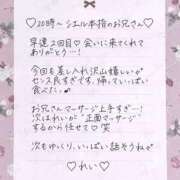 ♡20時〜シエル本指のお兄さん♡
早速2回目♡会いに来てくれて
ありがとう…!
今回も差し入れ沢山嬉しいが
センス良すぎです、帰っていっぱい
食べたい♪
お兄さんマーサージ上手すぎ…!
次はれいが"正面マーサージ
するから任せて♡笑
次もゆっくり、いっぱい話そうねッ
♡れい♡